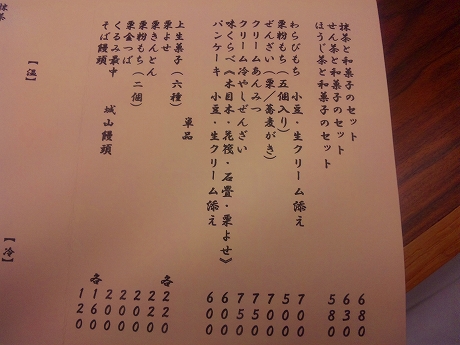 抹茶と和菓子のセット 680
せん茶と和菓子のセット 630
ほうじ茶と和菓子のセット 580
わらびもち 小豆・生クリーム添え 700
栗粉もち（五個入り） 500
ぜんざい（栗／蕎麦がき） 700
クリームあんみつ 700
クリーム冷やしぜんざい 750
味くらべ《木目木・花筏・石畳・栗よせ》
パンケーキ 小豆・生クリーム添え 600
単品
上生菓子（六種） 各220
栗よせ
栗きんとん 220
栗粉もち（二個） 220
栗金つば 200
くるみ最中 200
そば饅頭 城山饅頭 各160
120
抹茶
【温】
【冷】